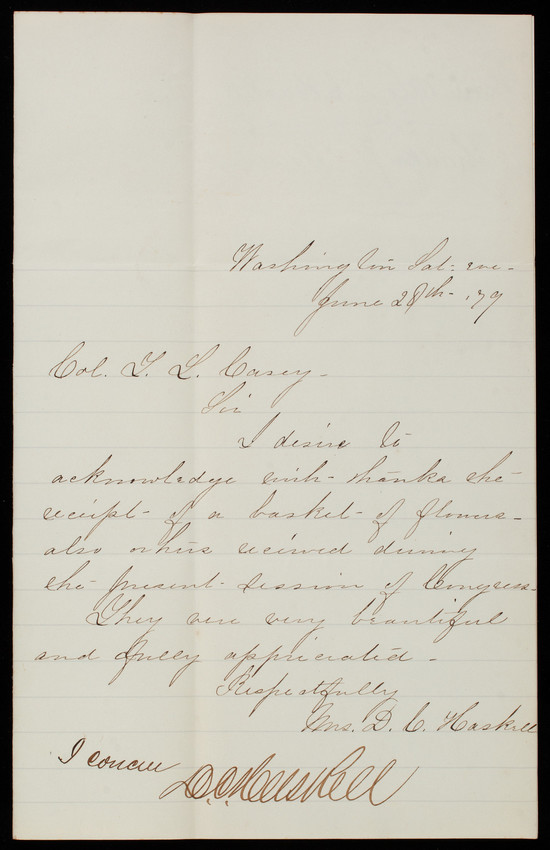 Washington Sat- eve-
June 28th- , 79
Col. T. L. Casey-
Sir
I desire to
acknowledge with thanks the
receipt of a basket of flowers-
also others received during
the present session of Congress-
They were very beautiful
and fully appreciated-
Respectfully
Mrs. D. C. Haskell
I concur
D.C. Haskell